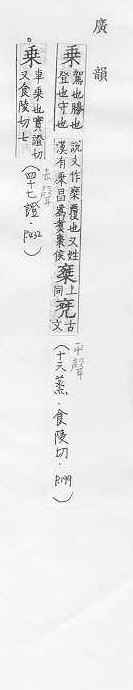 廣韻
乘 駕也勝也登也守也 說文作椉覆也又姓漢有乘昌爲煑棗侯 椉 上同 兖 古文 (十六蒸．食陵切．P.199)
平聲
乘 車乘也實證切又食陵切七 (四十七證．P.432)
去聲